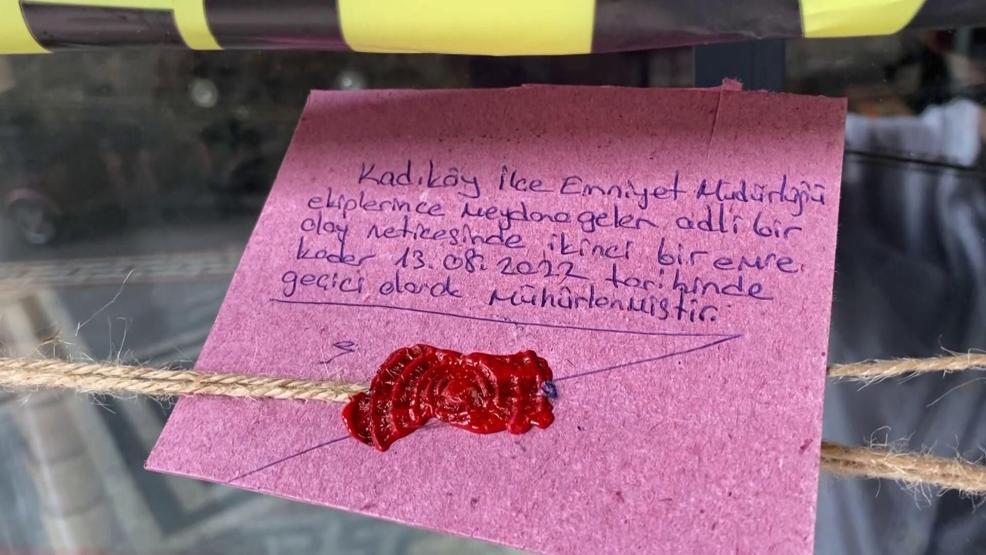 Kadıköy İlçe Emniyet Müdürlüğü
ekiplerince meydana gelen adli bir
olay neticesinde ikinci bir emre
kadar 13.08.2022 tarihinde
geçici olarak mühürlenmiştir.